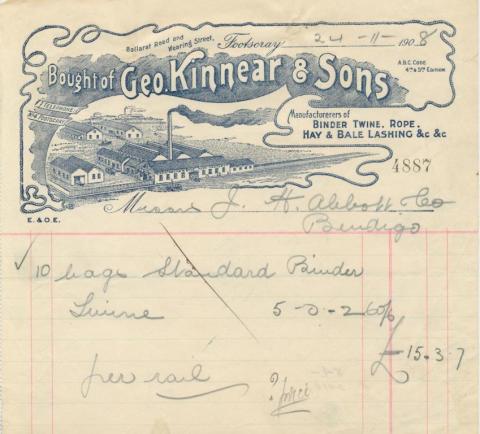 Ballarat Road and
Wearing Street,
Footscray 24-11-1908
A.B.C. CODE
4TH & 5TH EDITION
Bought of Geo. Kinnear & Sons
TELEPHONE
FOOTSCRAY
Manufacturers of
BINDER TWINE, ROPE,
HAY & BALE LASHING &c &c
4887
Messrs J. H. Abbott & Co
E. & O.E.
Bendigo
✓ 10 bags Standard Binder
Twine 5-0-2 60/6
£15-3-7
per rail